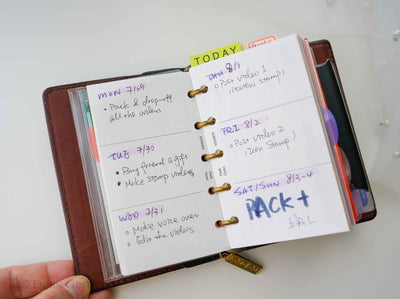 TODAY
MON 7/29
• Pack & drop-off
all the orders
TUE 7/30
• Buy friend a gift
• Make stamp videos
WED 7/31
• Make voice over
• Edit the videos
THU 8/1
• Post video 1
(review stamp)
FRI 8/2
• Post video 2
(Icon Stamp)
SAT/SUN 8/3-4
PACK +